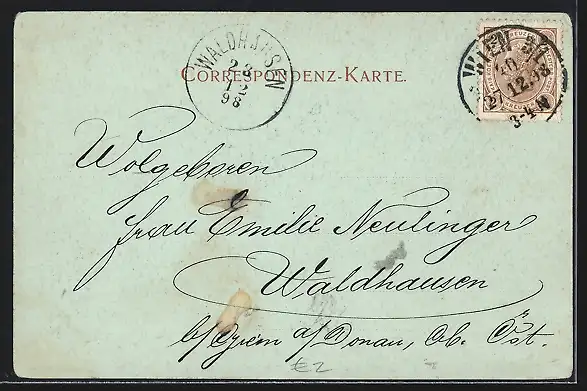 WALDHAUSEN
28
12
98
CORRESPONDENZ-KARTE.
WIEN
12.98
3-4 N
Wolgeboren
Frau Emilie Neulinger
Waldhausen
b/Grein a/Donau, Ob. Öst.
€2